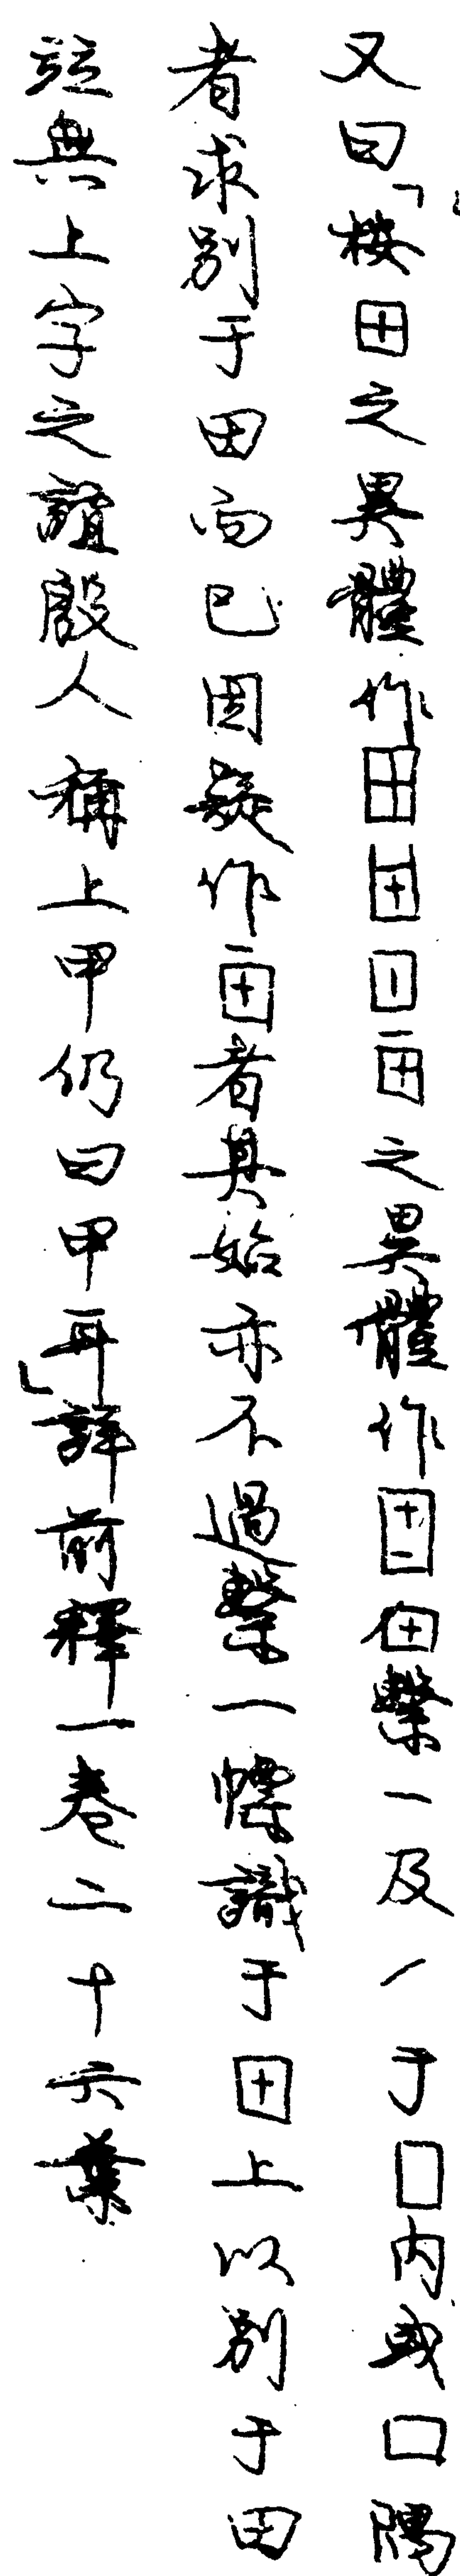 又曰「按田之異體作田𠚖之異體作繫一及丿于囗内或囗隅
者求別于田而已因疑作者其始亦不過繫一幖識于田上以別于田
竝無上字之誼殷人稱上甲仍曰甲耳」詳前釋一卷二十六葉